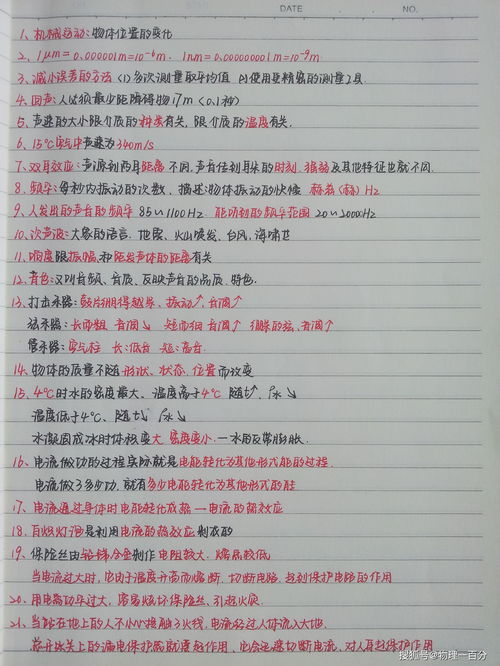 DATE NO.
1、机械运动:物体位置的变化
2、1μm=0.000001m=10⁻⁶m. 1nm=0.000000001m=10⁻⁹m
3、减小误差的方法 (1)多次测量取平均值 (2)使用更精密的测量工具.
4、回声:人必须最少距障碍物17m (0.1秒)
5、声速的大小跟介质的种类有关,跟介质的温度有关.
6、15℃空气中声速为340m/s
7、双耳效应:声源到两耳距离不同,声音传到耳朵的时刻、强弱及其他特征也就不同.
8、频率:每秒内振动的次数、描述:物体振动的快慢 赫兹(赫) Hz
9、人发出的声音的频率 85~1100Hz 能听到的频率范围 20~20000Hz
10、次声波:大象的语言. 地震、火山喷发、台风、海啸
11、响度跟振幅、和距发声体的距离有关
12、音色:又叫音频、音质、反映声音的品质、特色.
13、打击乐器:鼓皮绷得越紧、振动↑、音调↑
弦乐器:长而粗 音调↓ 短而细 音调↑ 绷紧的弦、音调↑
管乐器:空气柱 长:低音 短:高音.
14、物体的质量不随形状、状态、位置而改变
15、4℃时水的密度最大、温度高于4℃ 随t↑、ρ水↘
温度低于4℃、随t↓ ρ水↘
水凝固成冰时体积变大 密度变小.—水的反常膨胀.
16、电流做功的过程实际就是电能转化为其他形式能的过程.
电流做了多少功、就有多少电能转化为其他形式的能
17、电流通过导体时电能转化成热—电流的热效应
18、白炽灯泡是利用电流的热效应制成的
19、保险丝由铅锑合金制作 电阻较大、熔点较低
当电流过大时,它由于温度升高而熔断、切断电路、起到保护电路的作用
20、用电器功率过大,容易烧坏保险丝、引起火灾.
21、当站在地上的人不小心接触了火线,电流经过人体流入大地.
总开关上的漏电保护器就要起作用、它会迅速切断电流、对人起保护作用
搜狐号@物理一百分